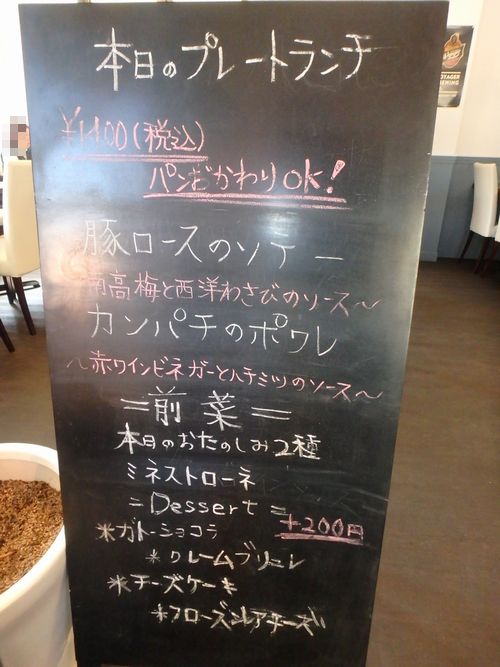 本日のプレートランチ
¥1400(税込)
パンおかわりOK!
豚ロースのソテー
南高梅と西洋わさびのソース〜
カンパチのポワレ
〜赤ワインビネガーとハチミツのソース〜
=前菜=
本日のおたのしみ2種
ミネストローネ
=Dessert=
+200円
*ガトーショコラ
*クレームブリュレ
*チーズケーキ
*フローズンレアチーズ
VOYAGER
BREWING